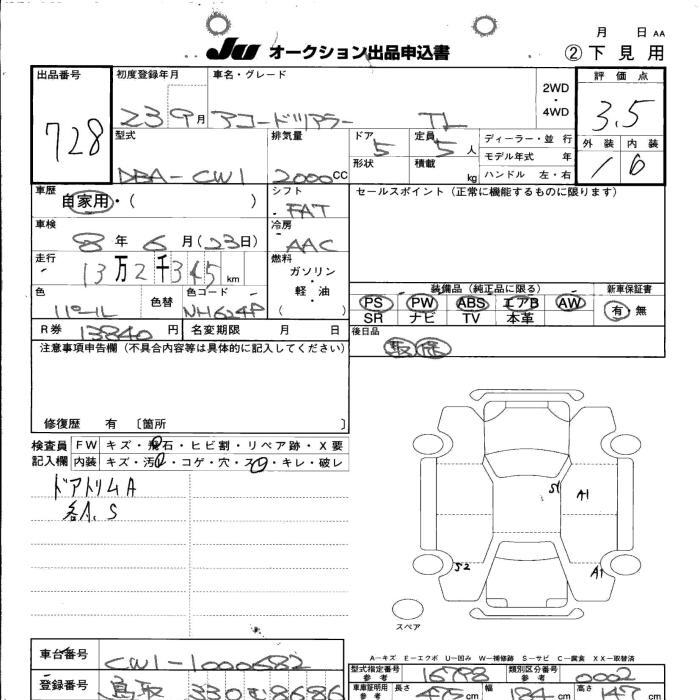 月 日 AA
JU オークション出品申込書 ②下見用
出品番号 初度登録年月 車名・グレード 2WD・4WD 評価点
728 23 9月 アコードツアラー TL 3.5
型式 排気量 ドア 定員 ディーラー・並行 外装 内装
DBA-CW1 2000cc 5 5人 モデル年式 年
形状 積載 kg ハンドル 左・右
車歴 自家用・( ) シフト FAT セールスポイント（正常に機能するものに限ります）
車検 8年6月(23日) 冷房 AAC
走行 13万2千345km 燃料 ガソリン・軽油 ( )
装備品（純正品に限る） 新車保証書
色 パール 色替 色コード NH624P
PS PW ABS エアB AW 有・無
SR ナビ TV 本革
R券 13840円 名変期限 月 日 後日品
注意事項申告欄（不具合内容等は具体的に記入してください） 取 保
修復歴 有 〔箇所 〕
検査員記入欄 FW キズ・飛石・ヒビ割・リペア跡・X要
内装 キズ・汚・コゲ・穴・スレ・キレ・破レ
ドアトリムA
各A、S
S1 A1
S2 A1
スペア
A－キズ E－エクボ U－凹み W－補修跡 S－サビ C－腐食 XX－取替済
車台番号 CW1-1000682 型式指定番号 参考 16798 類別区分番号 参考 0002
登録番号 鳥取 330 車庫証明用 参考 長さ cm 幅 184 cm 高さ cm